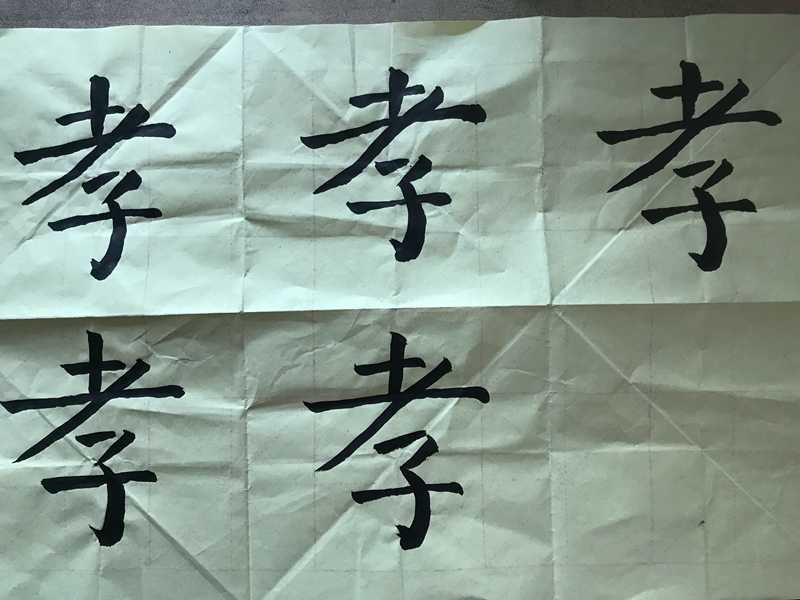 孝孝孝
孝孝